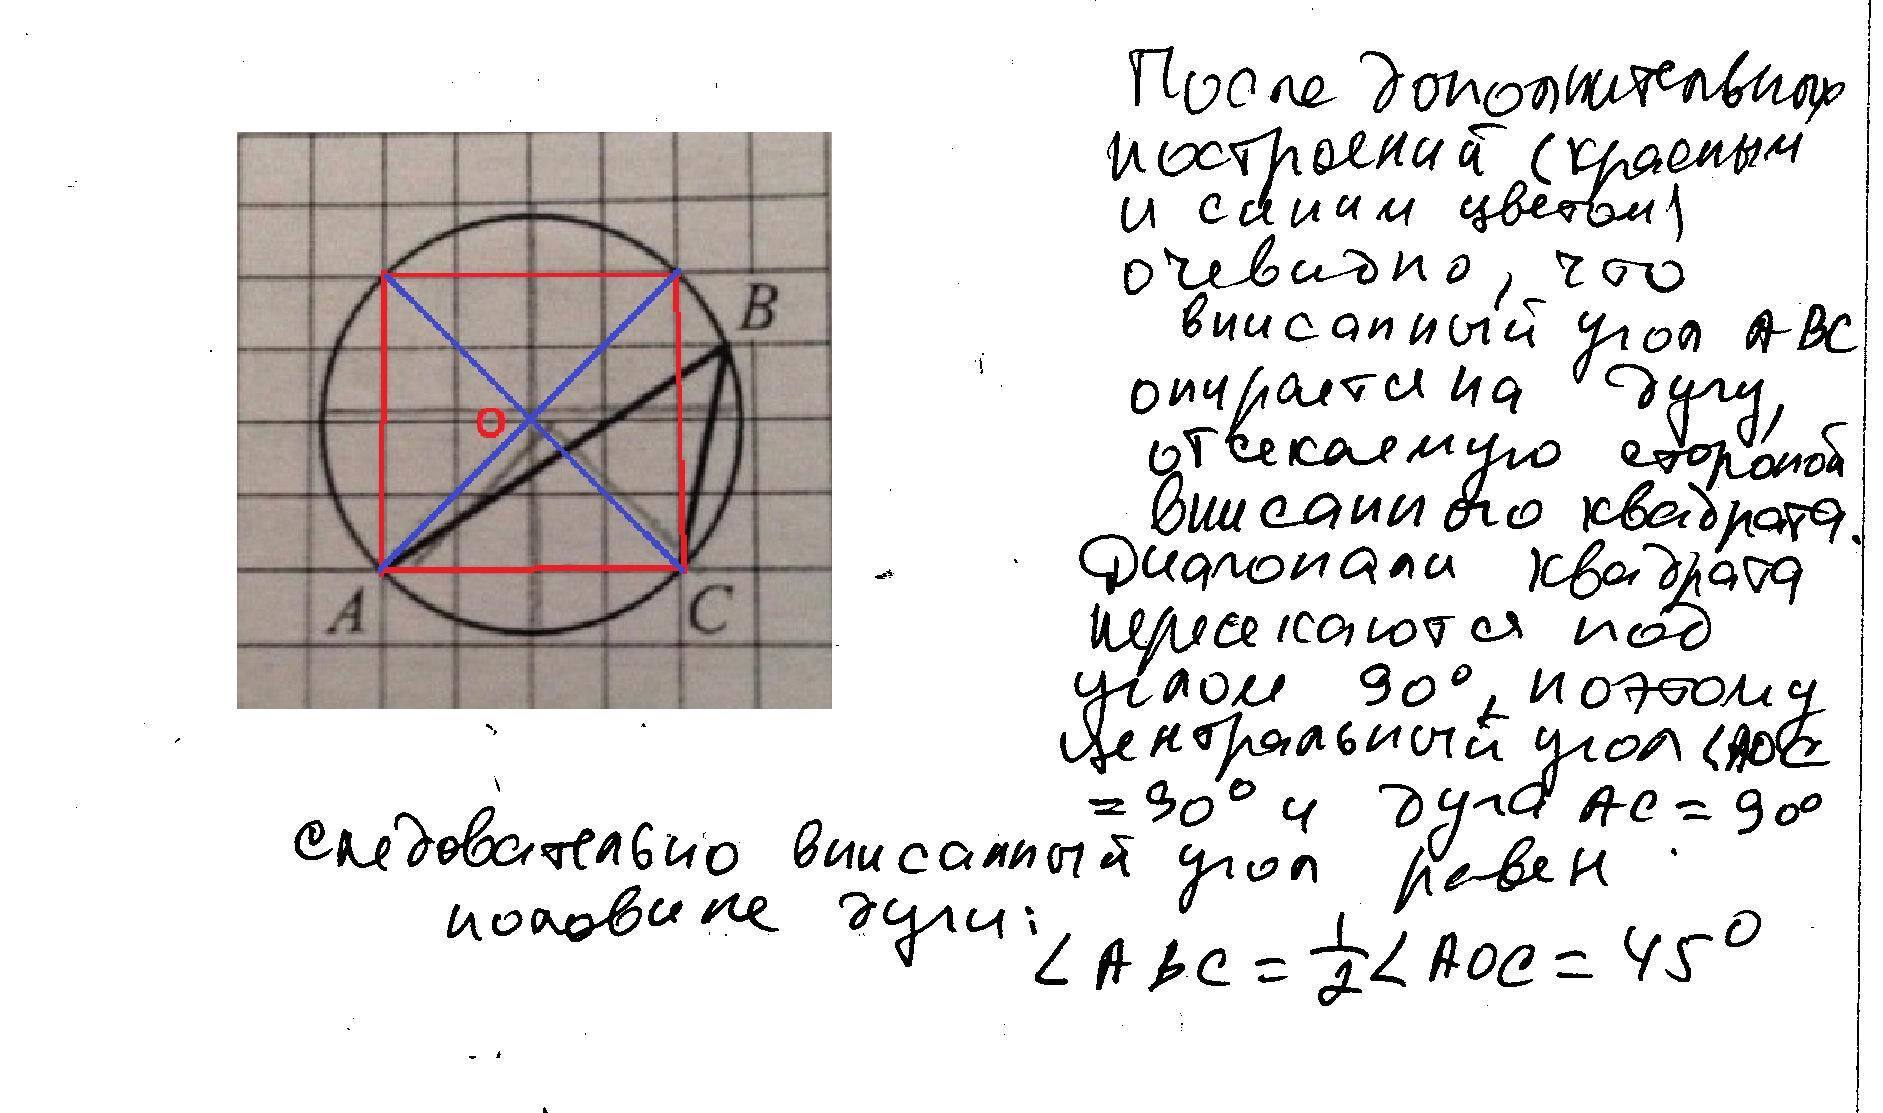 После дополнительных
построений (красным
и синим цветом)
очевидно, что
вписанный угол ABC
опирается на дугу,
отсекаемую стороной
вписанного квадрата.
Диагонали квадрата
пересекаются под
углом 90°, поэтому
центральный угол ∠AOC
= 90° и дуга AC = 90°
B
O
A
C
следовательно вписанный угол равен
половине дуги:
∠ABC = 1/2 ∠AOC = 45°